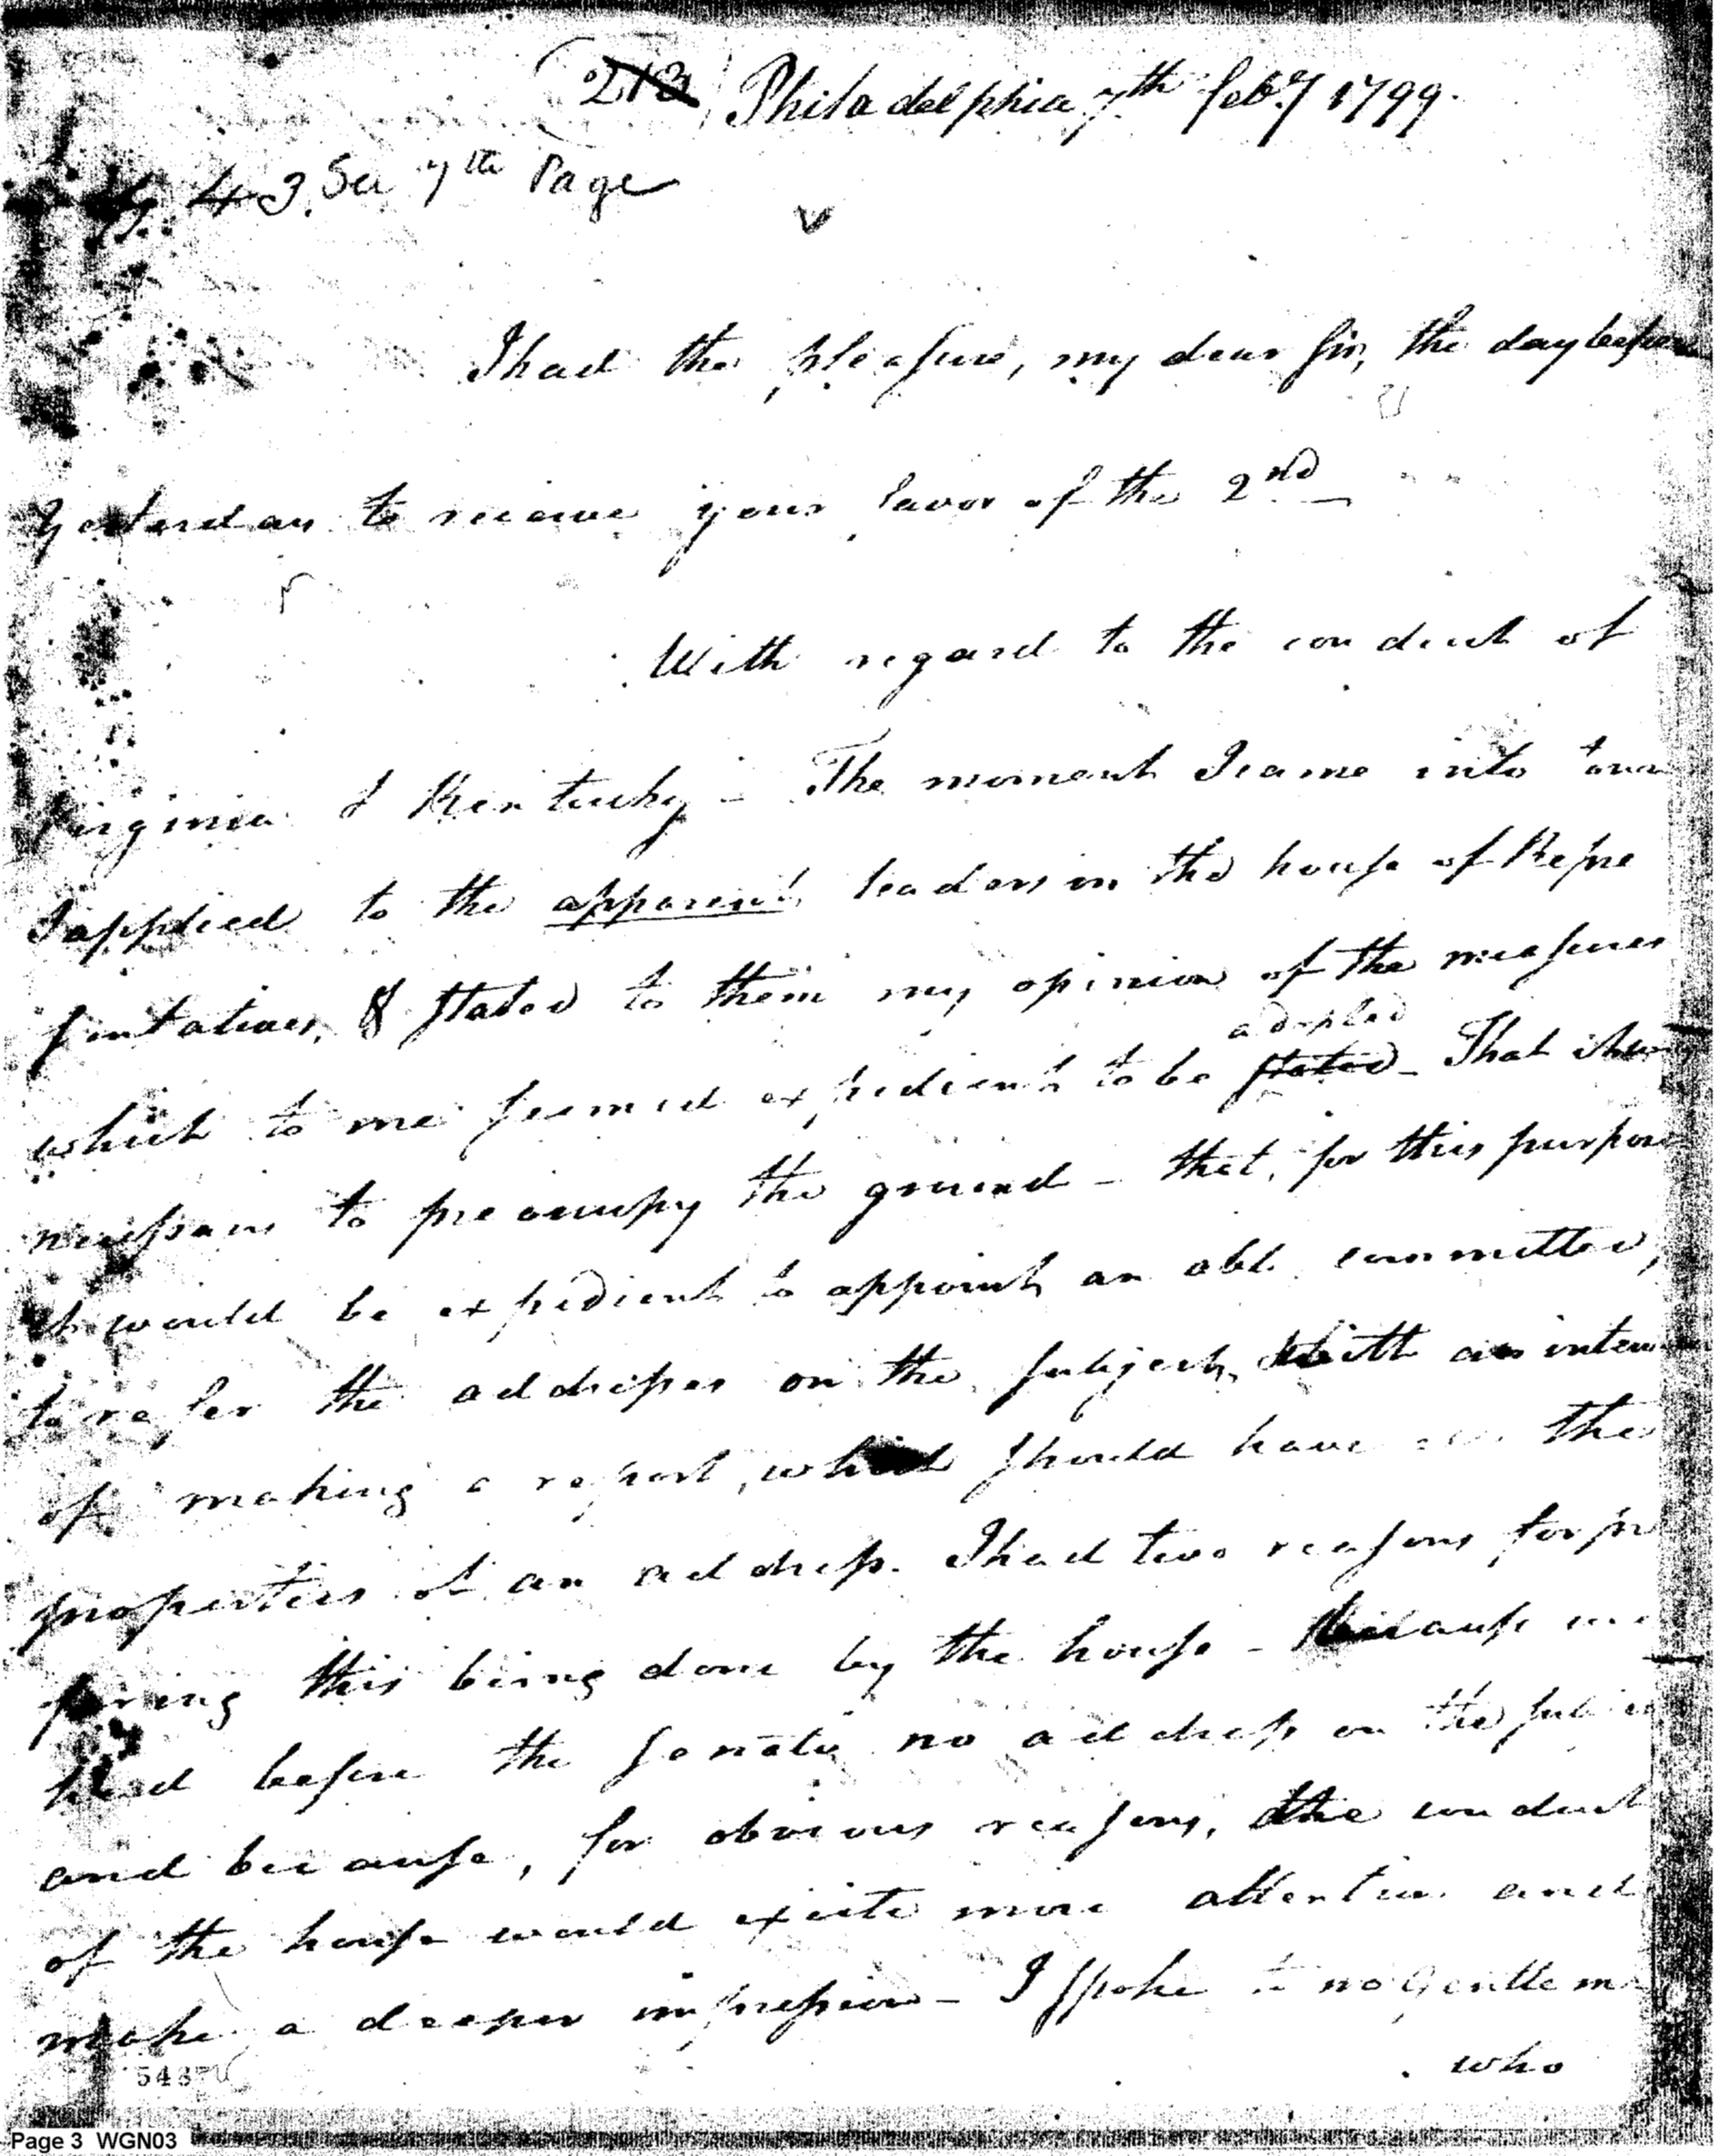 213 Philadelphia 7th feby 1799.
43. See 7th Page
I had the pleasure, my dear sir, the day before
yesterday to receive your favor of the 2nd
With regard to the conduct of
Virginia & Kentucky – The moment I came into town
I applied to the apparent leaders in the house of Repre
sentatives, & stated to them my opinion of the measures
adopted
which to me seemed expedient to be stated – That it was
necessary to preoccupy the ground – that, for this purpose
it would be expedient to appoint an able committee,
to refer the addresses on the subject, with an
of making a report, which should have the
properties of an address. I had two reasons for pre
ferring this being done by the house – because we
had before the senate no address on the subject
and because, for obvious reasons, the conduct
of the house would excite more attention and
make a deeper impression – I spoke to no Gentlem
who
5487
Page 3 WGN03